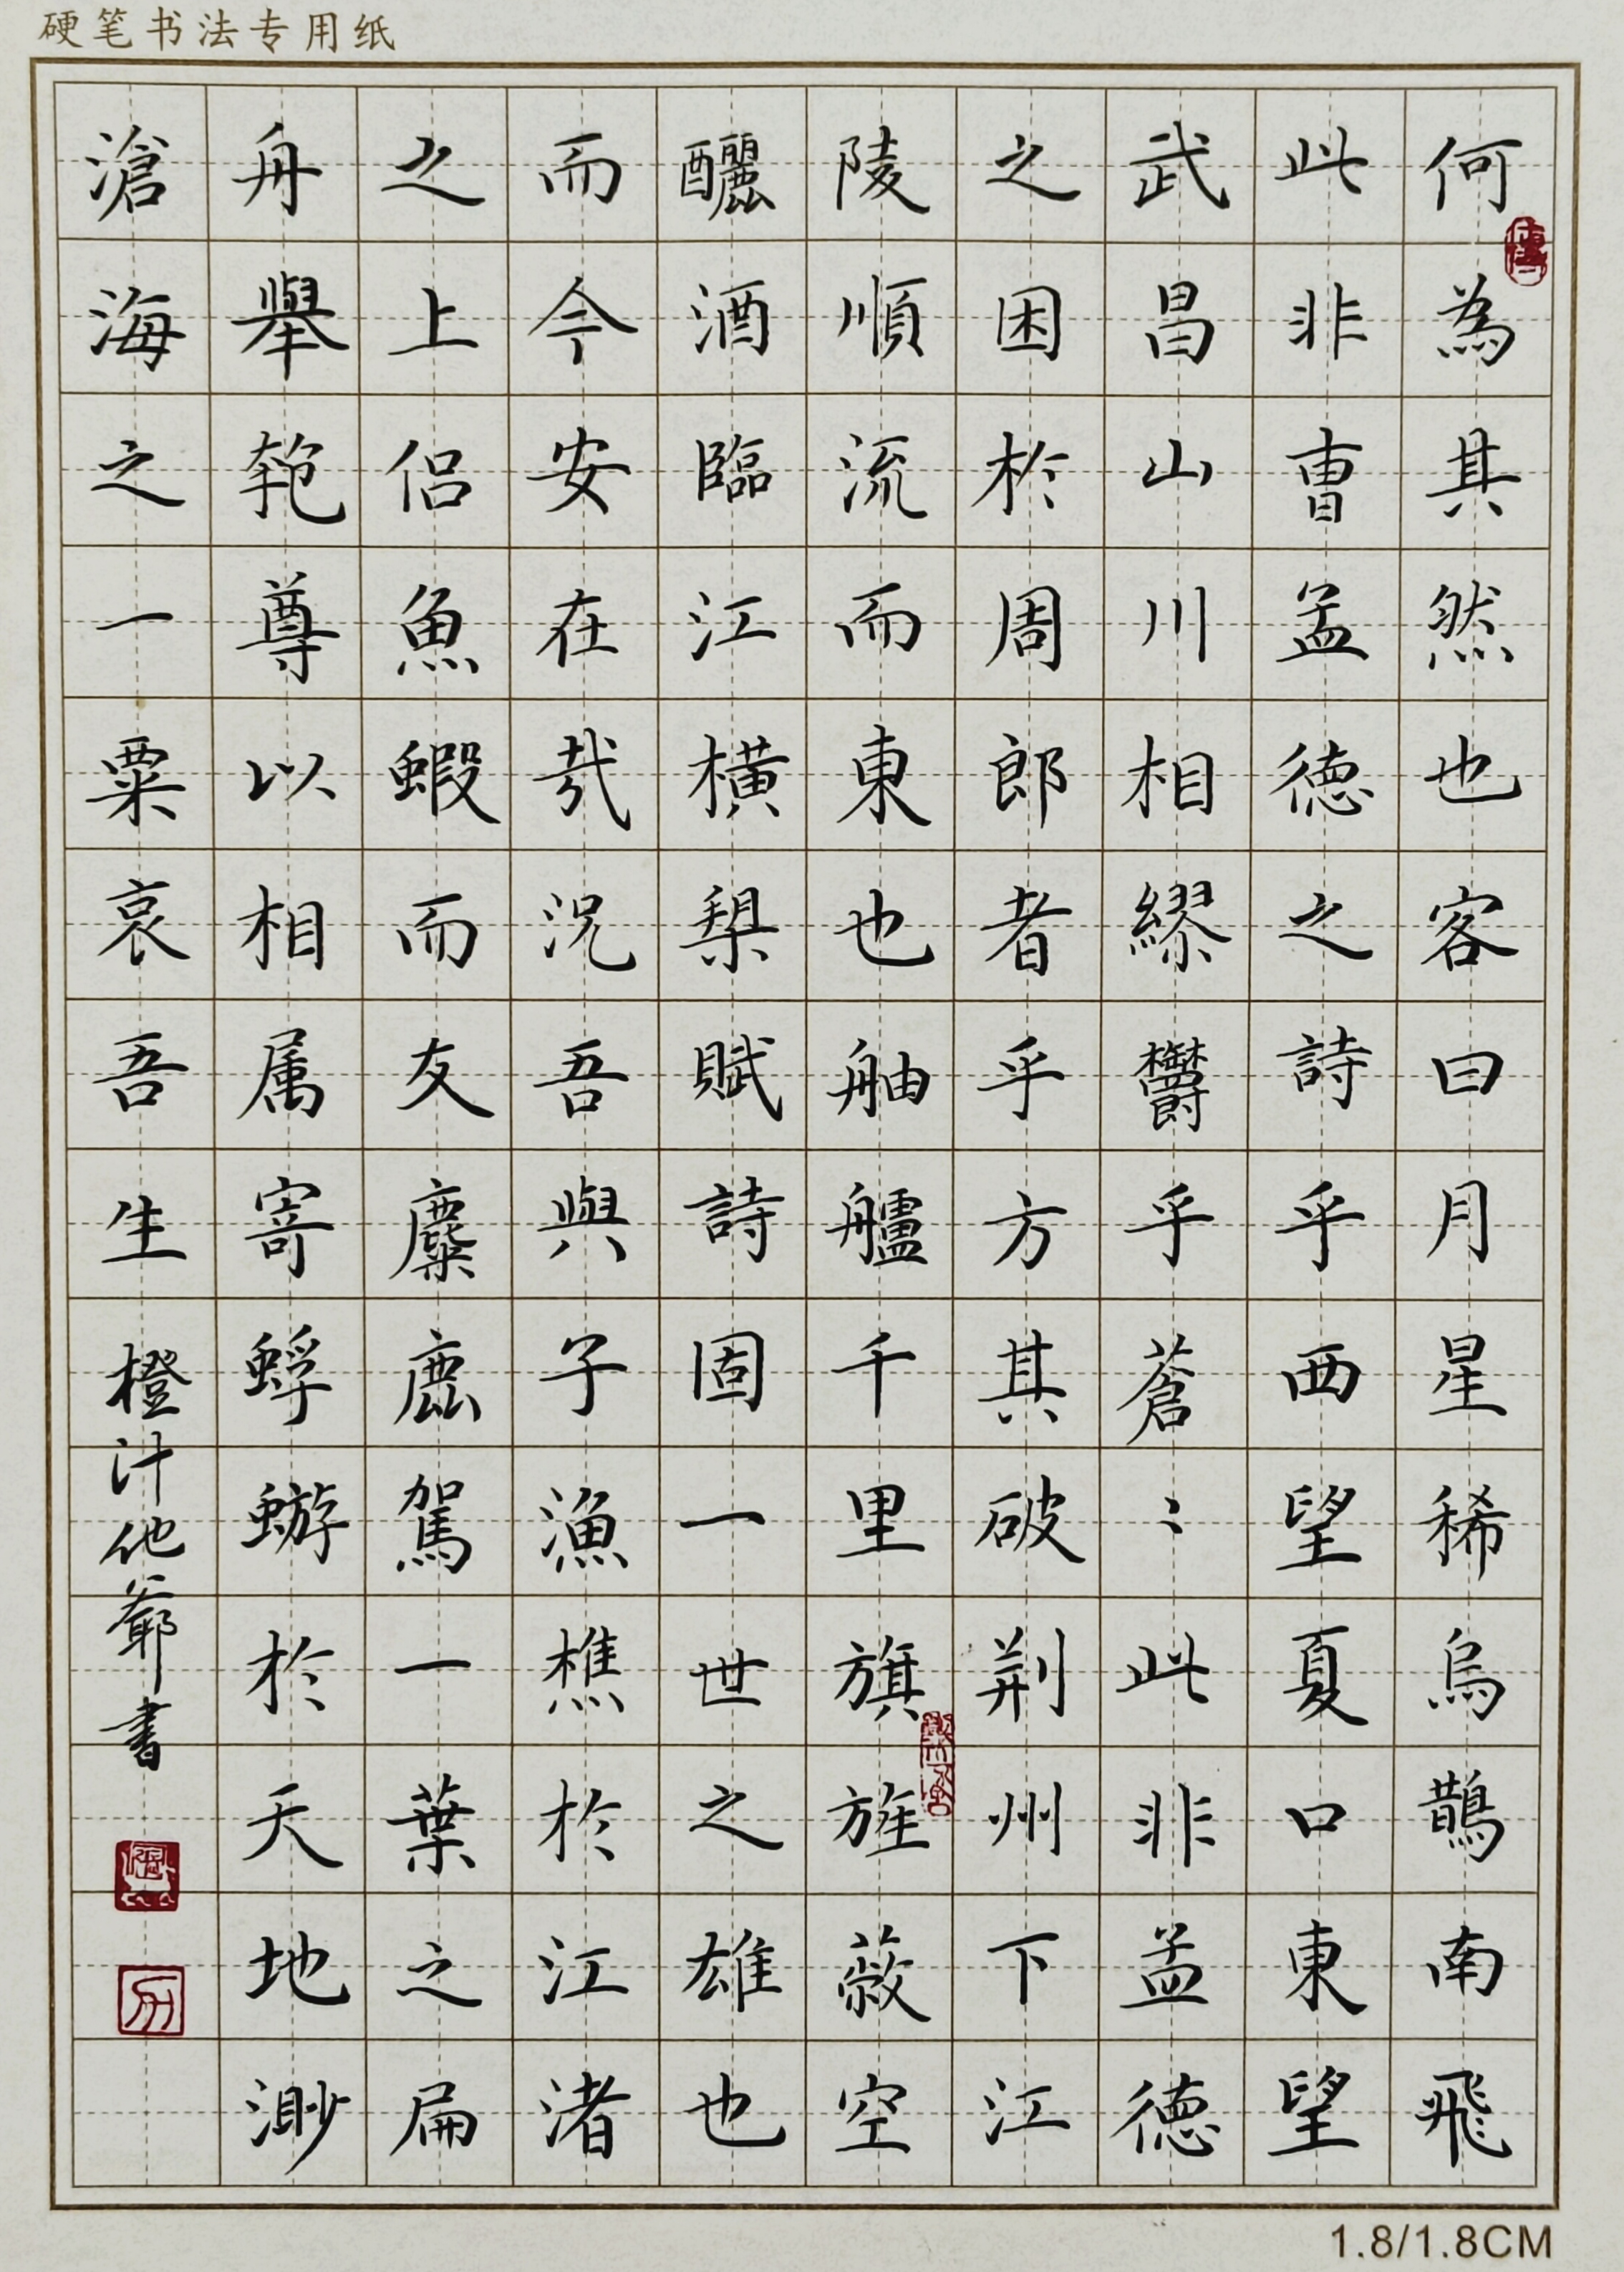 硬笔书法专用纸
何為其然也客曰月星稀烏鵲南飛
此非曹孟德之詩乎西望夏口東望
武昌山川相繆欝乎蒼〻此非孟德
之困於周郎者乎方其破荆州下江
陵順流而東也舳艫千里旗旌蔽空
釃酒臨江橫槊賦詩固一世之雄也
而今安在哉況吾與子漁樵於江渚
之上侣魚蝦而友麋鹿駕一葉之扁
舟舉匏尊以相属寄蜉蝣於天地渺
滄海之一粟哀吾生橙汁他爺書
1.8/1.8CM